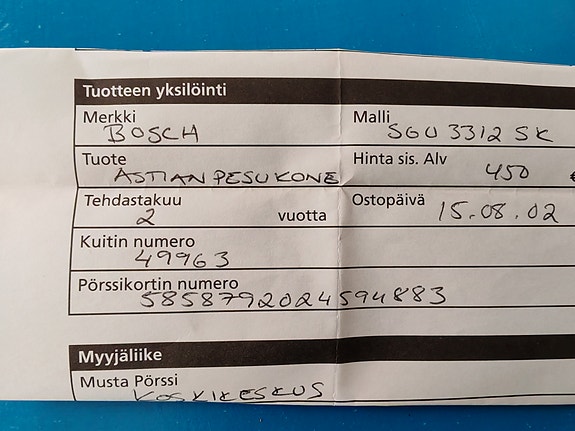 Tuotteen yksilöinti
Merkki Malli
BOSCH SGU 3312 SK
Tuote Hinta sis. Alv
ASTIANPESUKONE 450 €
Tehdastakuu Ostopäivä
2 vuotta 15.08.02
Kuitin numero
49963
Pörssikortin numero
5858792024594883
Myyjäliike
Musta Pörssi
KOSKIKESKUS